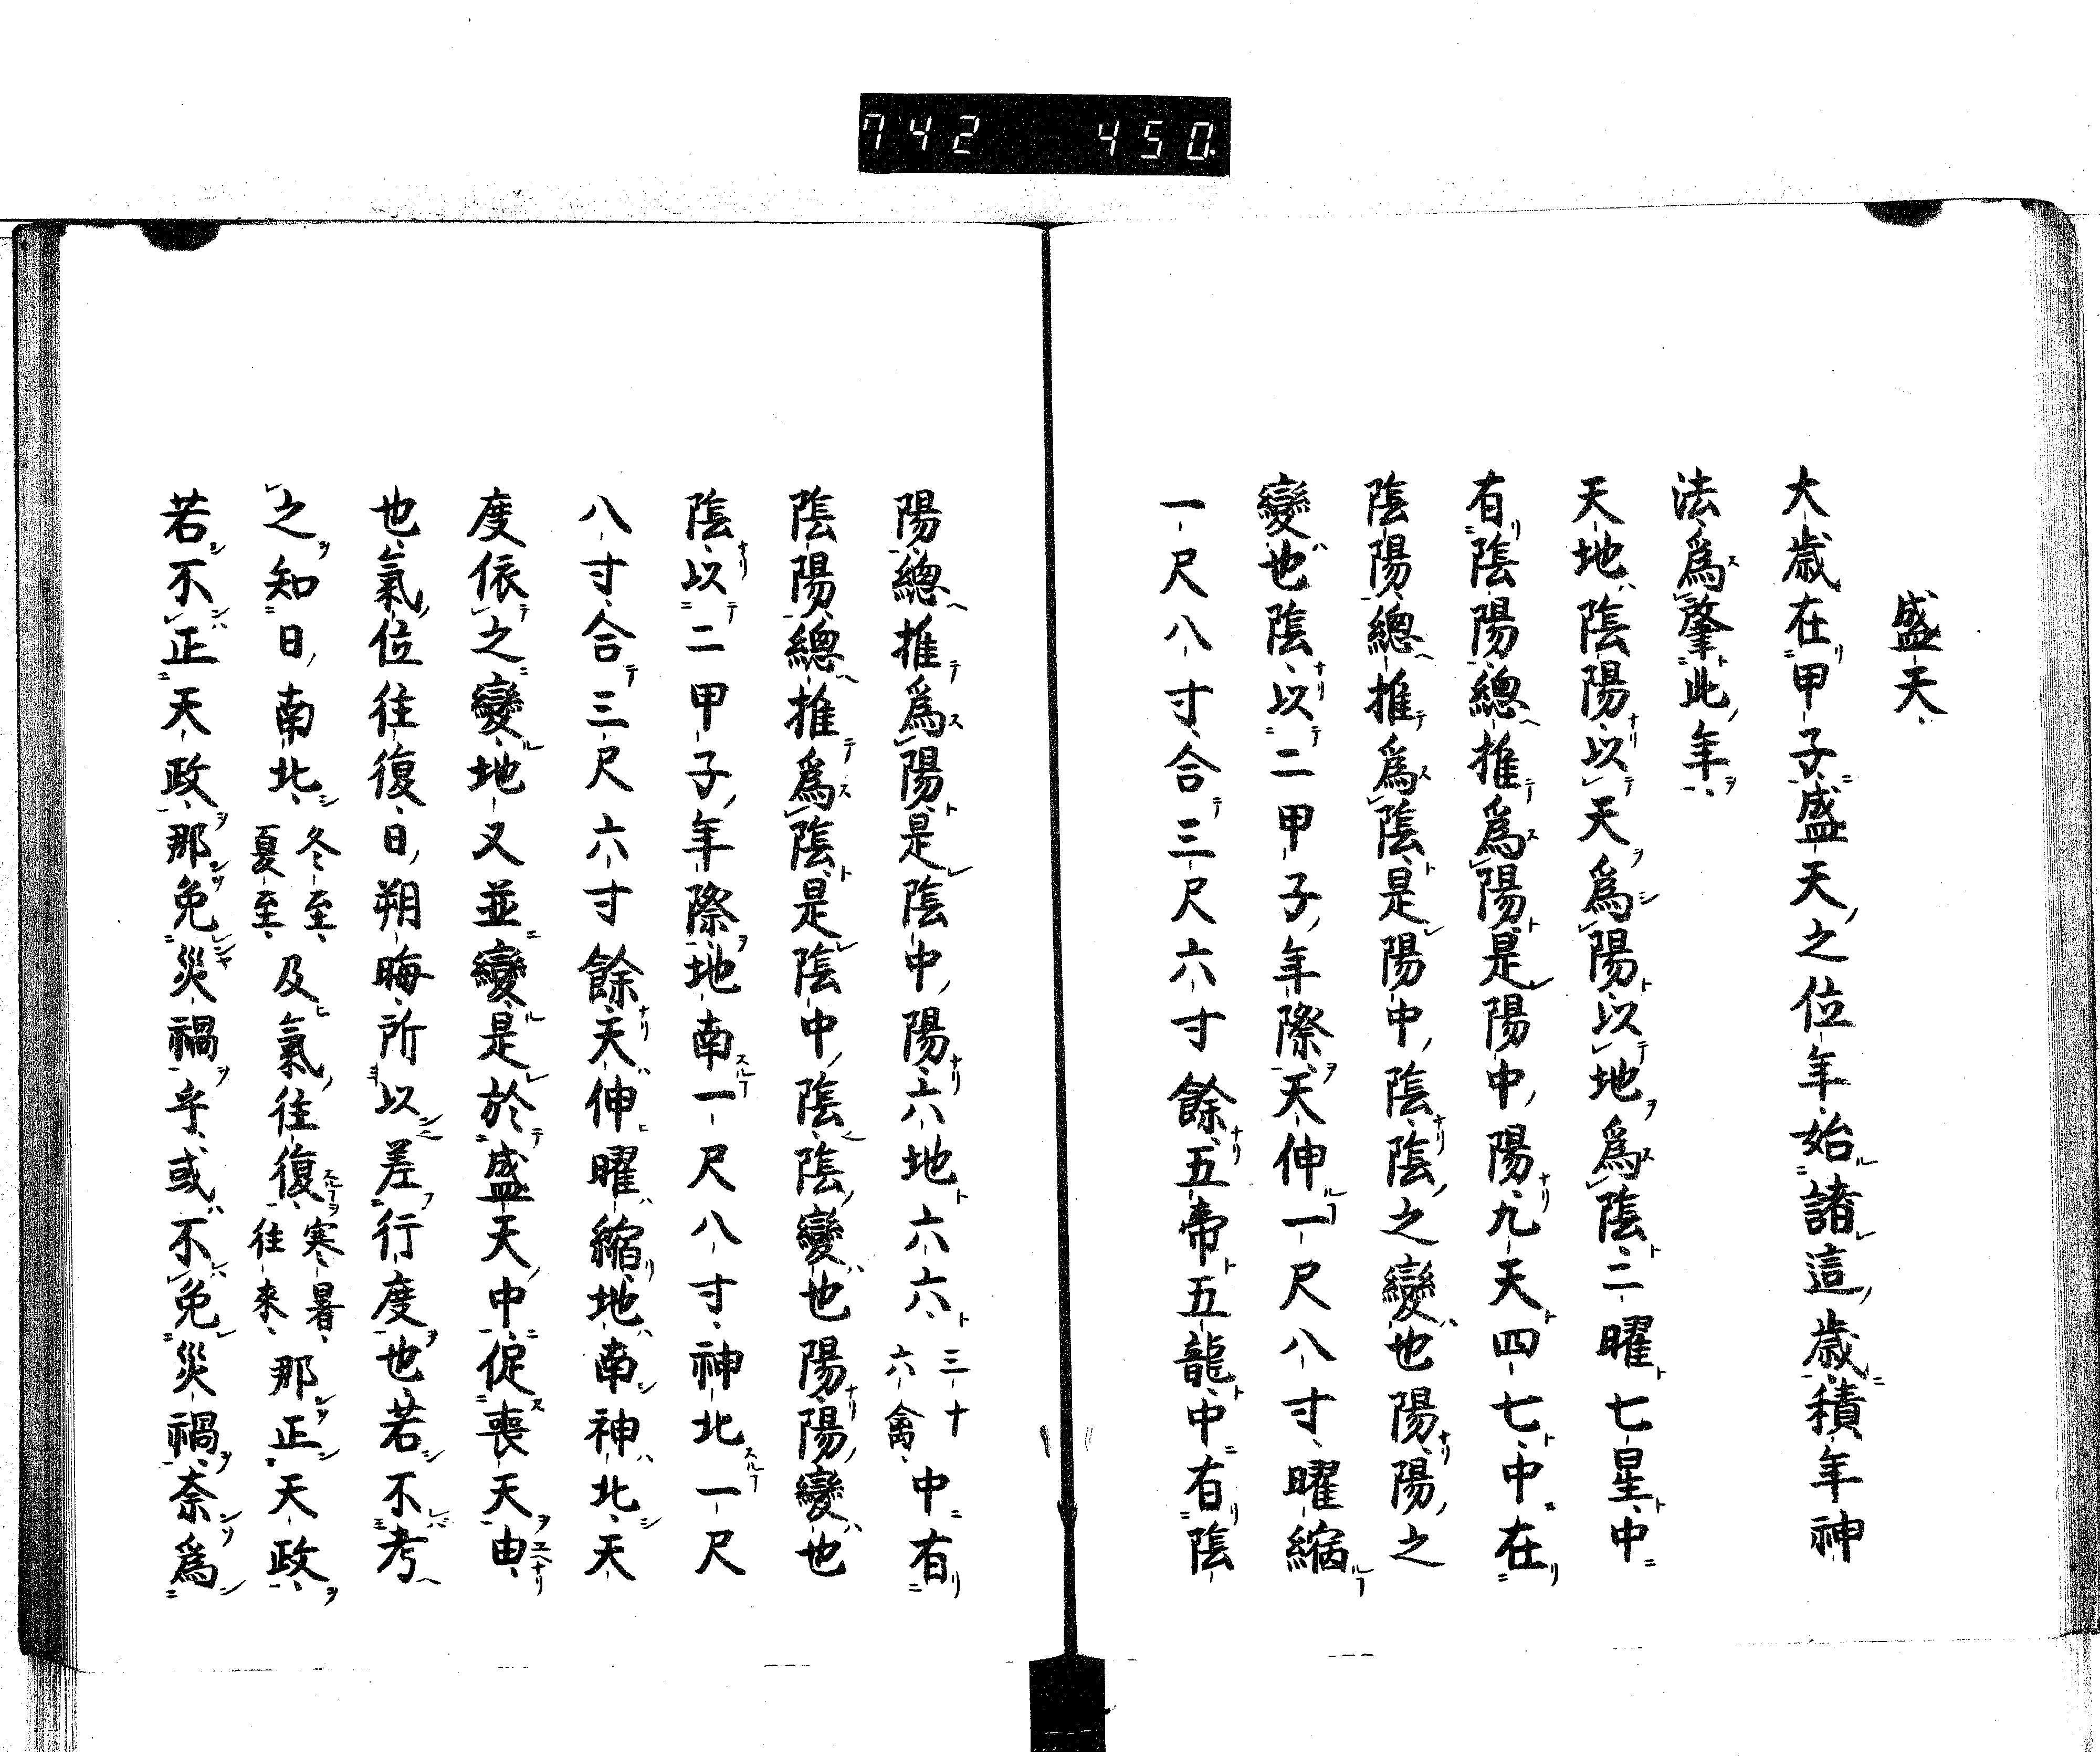 742 450
盛天
大歲在甲子盛天之位年始諸這歲積年神
法爲肇此年
天地陰陽以天爲陽以地爲陰二曜七星中
有陰陽總推爲陽是陽中陽九天四七中在
陰陽總推爲陰是陽中陰陰之變也陽陽之
變也陰以二甲子年際天伸一尺八寸曜縮
一尺八寸合三尺六寸餘五帝五龍中有陰
陽總推爲陽是陰中陽六地六六三十六禽中有
陰陽總推爲陰是陰中陰陰變也陽陽變也
陰以二甲子年際地南一尺八寸神北一尺
八寸合三尺六寸餘天伸曜縮地南神北天
度依之變地又並變是於盛天中促喪天由
也氣位往復日朔晦所以差行度也若不考
之知日南北冬至夏至及氣往復寒暑往來那正天政
若不正天政那免災禍乎或不免災禍奈爲